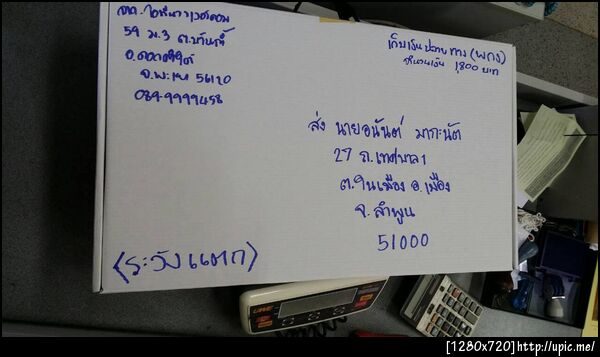 59 ม.3 ต.บ้านถ้ำ
อ.ดอกคำใต้
จ.พะเยา 56120
089-9999458
เก็บเงินปลายทาง (พกง)
จำนวนเงิน 1,800 บาท
ส่ง นายอนันต์ มากะนัต
27 ถ.เทศบาล 1
ต.ในเมือง อ.เมือง
จ.ลำพูน
51000
(ระวังแตก)
[1280x720]http://upic.me/